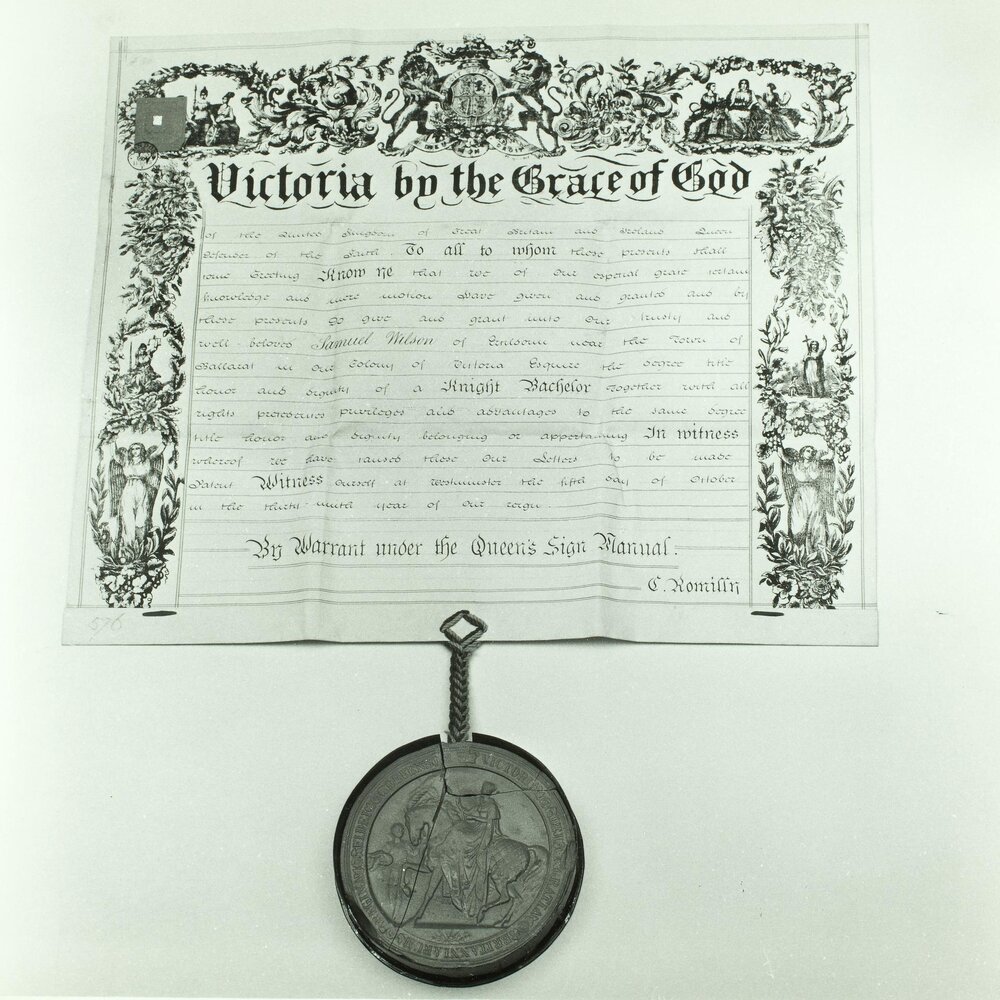 Victoria by the Grace of God
of the United Kingdom of Great Britain and Ireland Queen
Defender of the Faith. To all to whom these presents shall
come Greeting Know ye that we of Our especial grace certain
knowledge and mere motion Have given and granted and by
these presents Do give and grant unto Our trusty and
well beloved Samuel Wilson of Ercildoun near the Town of
Ballarat in Our Colony of Victoria Esquire the degree title
honor and dignity of a Knight Bachelor together with all
rights precedencies privileges and advantages to the same degree
title honor and dignity belonging or appertaining In witness
whereof we have caused these Our Letters to be made
Patent Witness Ourself at Westminster the fifth day of October
in the thirty ninth year of Our reign.
By Warrant under the Queen's Sign Manual.
C. Romilly